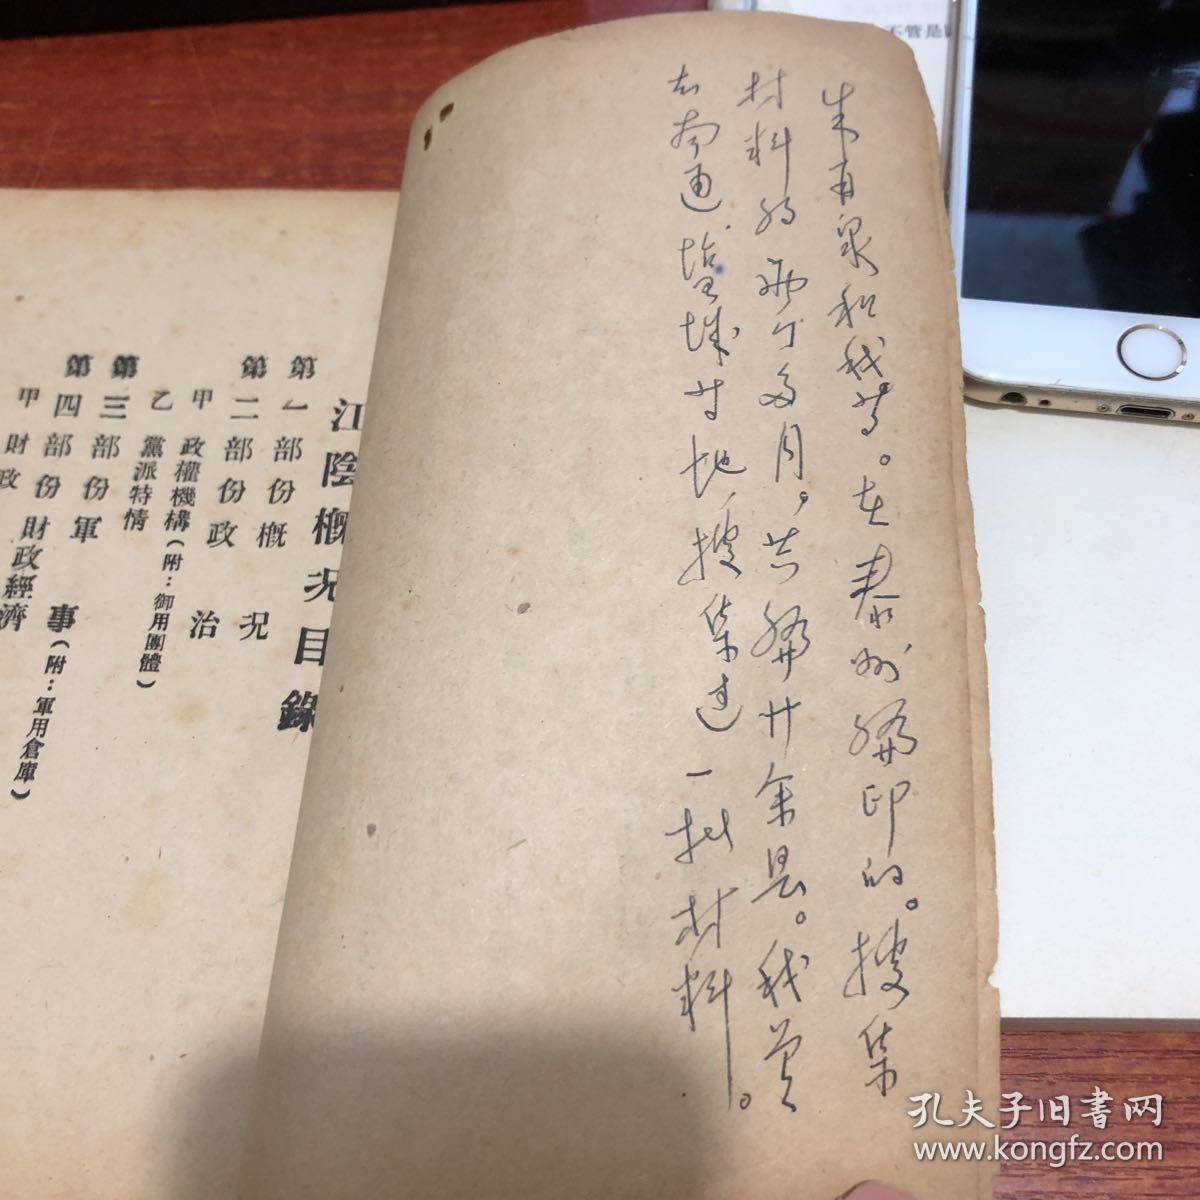 朱有泉和我等。在泰州编印的。搜集
材料约两个多月。共编廿余县。我曾
去南通、盐城等地，搜集过一批材料。
江陰概況目錄
第一部份 概況
第二部份 政治
甲 政權機構（附：御用團體）
乙 黨派特情
第三部份 軍事（附：軍用倉庫）
第四部份 財政經濟
甲 財政
不管是
孔夫子旧书网
www.kongfz.com